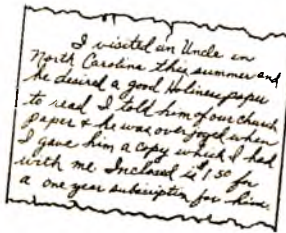 I visited an Uncle in
North Carolina this summer and
he desired a good Holiness paper
to read. I told him of our church
paper & he was overjoyed when
I gave him a copy which I had
with me. Inclosed is 1 50 for
a one year subscription for him.